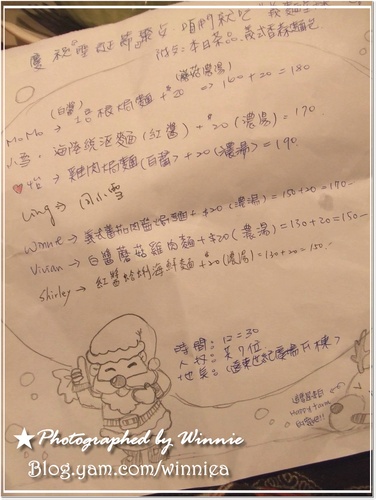 慶祝
附: 本日茶品, 義式香蒜麵包
(白醬) (蘑菇濃湯)
MoMo → 培根焗麵 + $20 => 160 + 20 = 180
小雪. 海陸焗麵 (紅醬) + $20 (濃湯) = 170
雞肉焗麵 (白醬) + 20 (濃湯) = 190
Ling → 同小雪
義式番茄肉醬焗麵 + $20 (濃湯) = 150 + 20 = 170
Vivian → 白醬蘑菇雞肉麵 + $20 (濃湯) = 130 + 20 = 150
Shirley → 紅醬 海鮮麵 + $20 (濃湯) = 130 + 20 = 150.
時間: 12:30
人數: 共7位
地點: (遠東世紀廣場 棟)
Happy Farm
★ Photographed by Winnie
Blog.yam.com/winniea